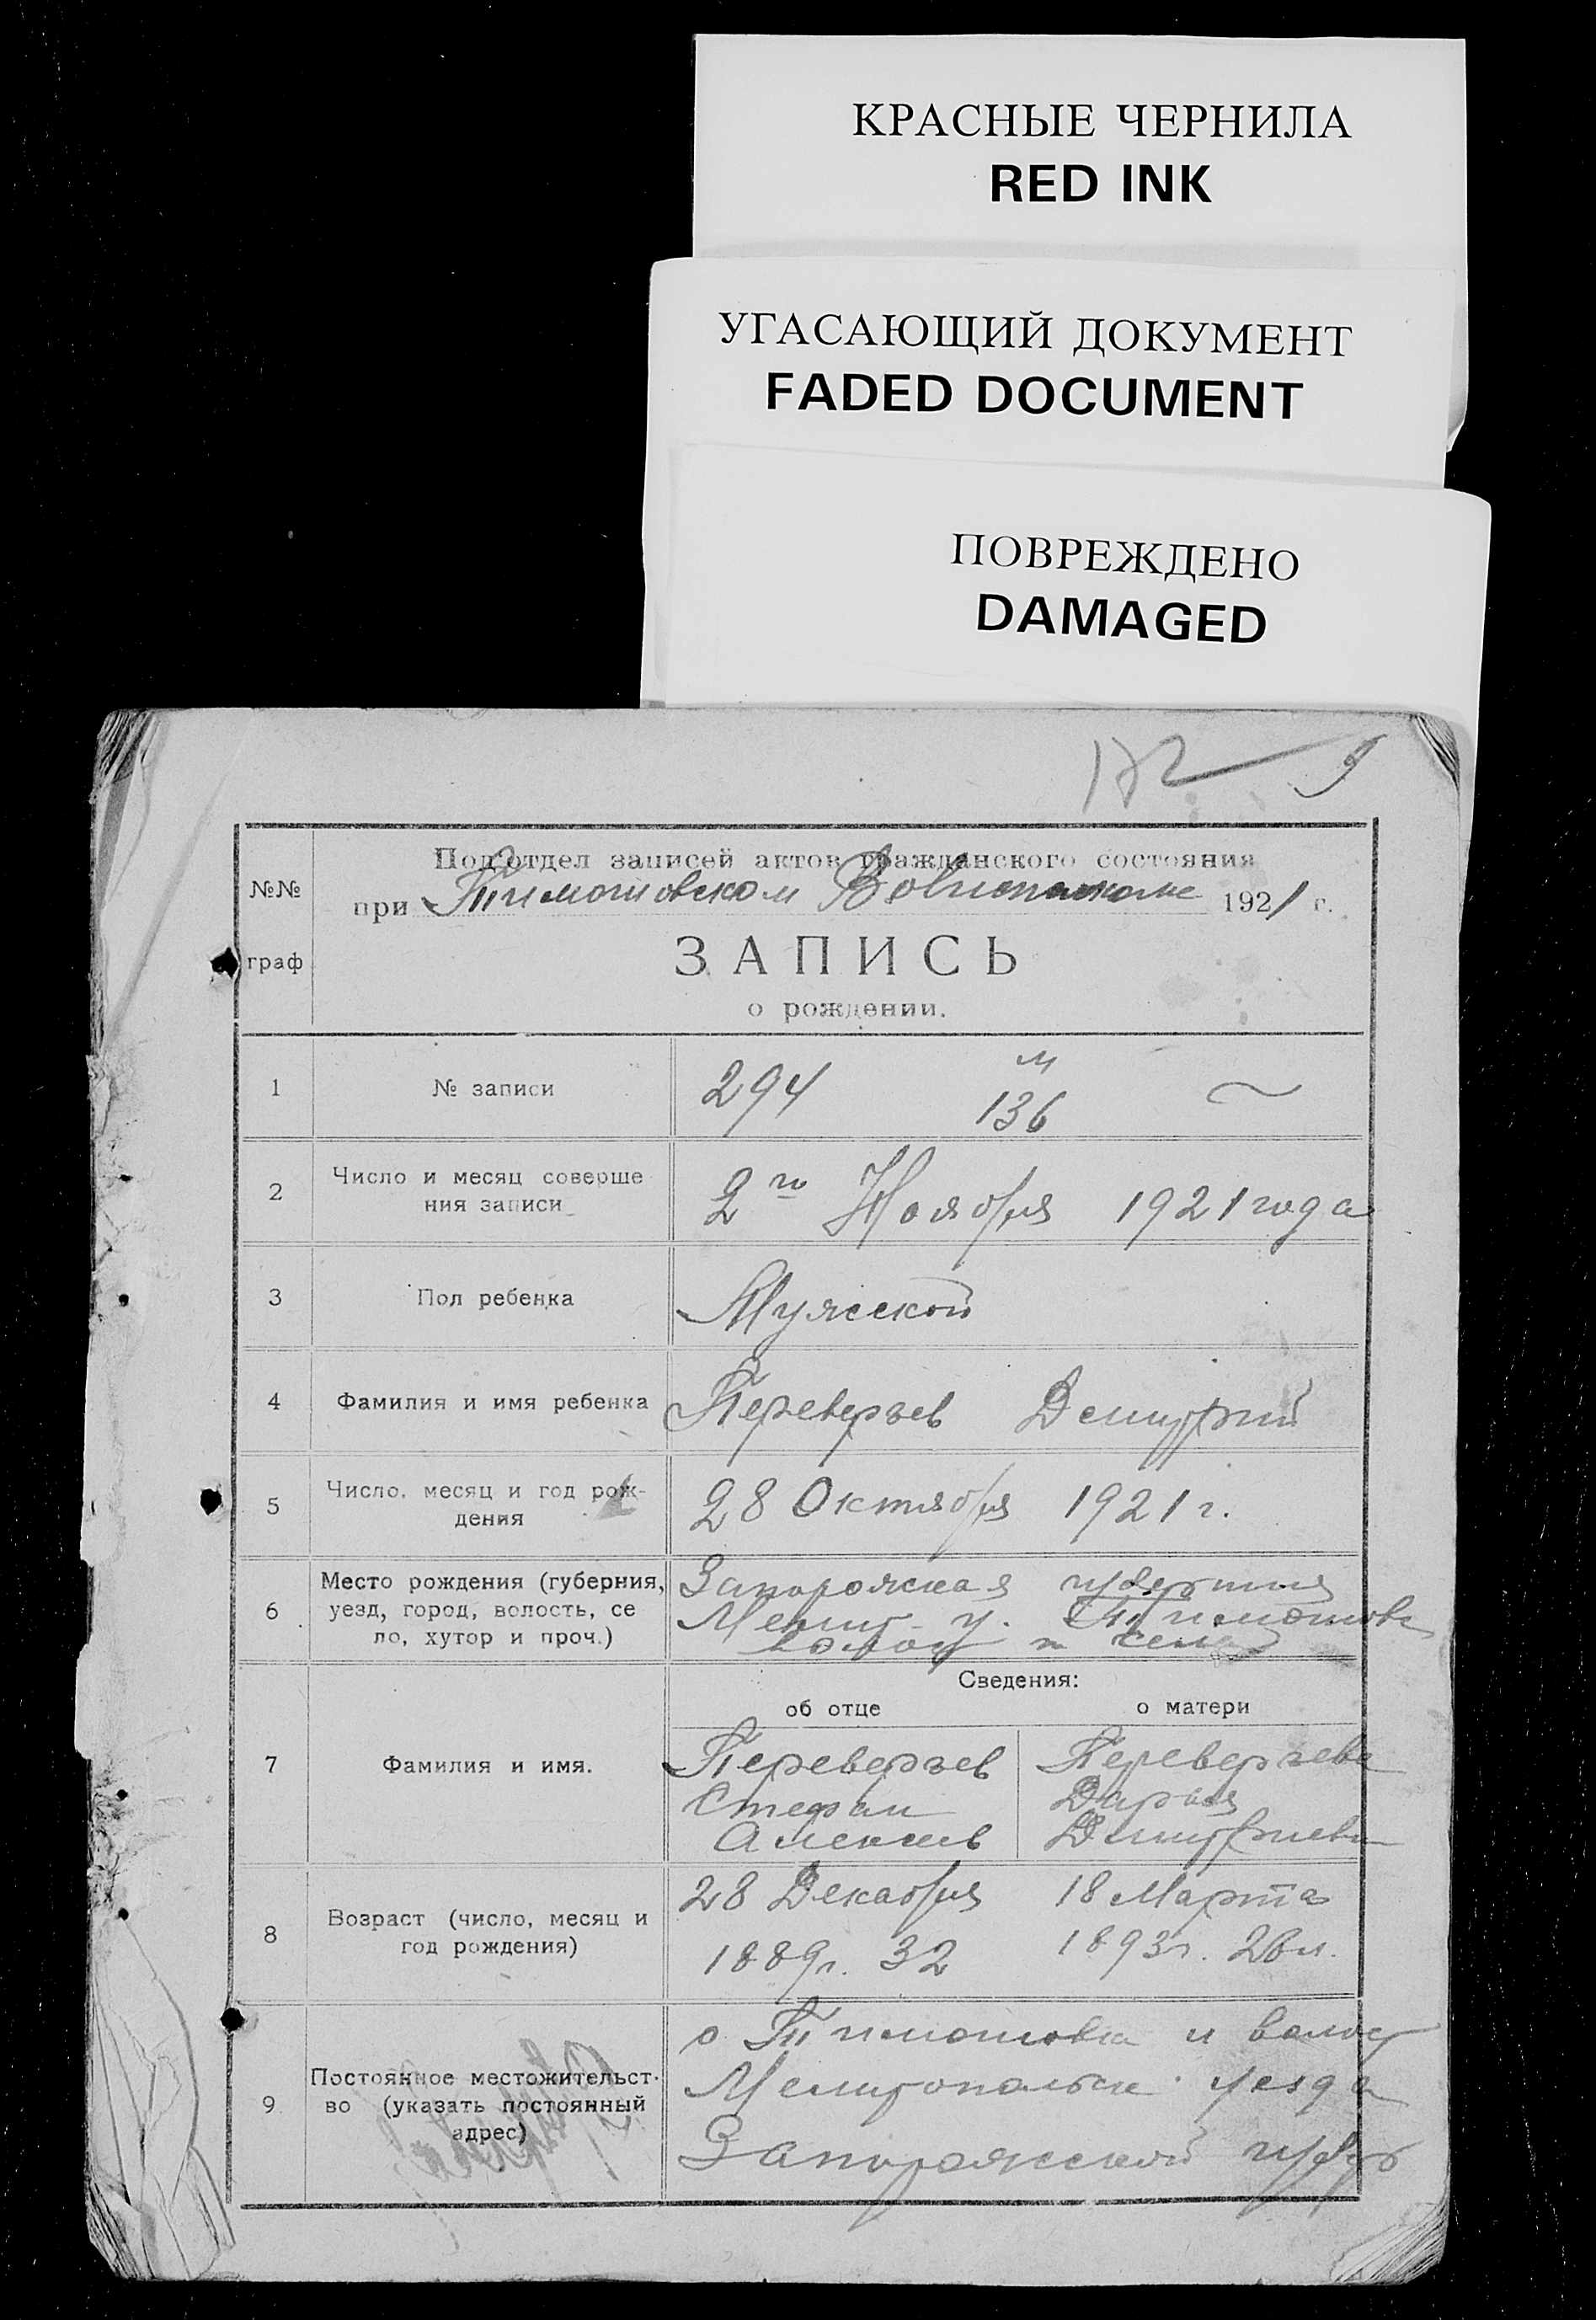 КРАСНЫЕ ЧЕРНИЛА
RED INK
УГАСАЮЩИЙ ДОКУМЕНТ
FADED DOCUMENT
ПОВРЕЖДЕНО
DAMAGED
172
Подотдел записей актов гражданского состояния
№№ граф
при Тимошовском Волисполкоме 1921 г.
ЗАПИСЬ
о рождении.
1 № записи 294 м 136
2 Число и месяц соверше
ния записи 2го Ноября 1921 года
3 Пол ребенка Мужской
4 Фамилия и имя ребенка Переверзев Димитрий
5 Число, месяц и год рож-
дения 28 Октября 1921 г.
Место рождения (губерния, Запорожская губерния
6 уезд, город, волость, се Мелит. у. Тимошовк
ло, хутор и проч.) волост и село
Сведения:
об отце о матери
7 Фамилия и имя. Переверзев Переверзева
Стефан Дарья
Алексеев Димитриева
8 Возраст (число, месяц и 28 Декабря 18 Марта
год рождения) 1889г. 32 1893г. 28л.
с Тимошовка и волост
9 Постоянное местожительст- Мелитопольск уезда
во (указать постоянный
адрес) Запорожской губер